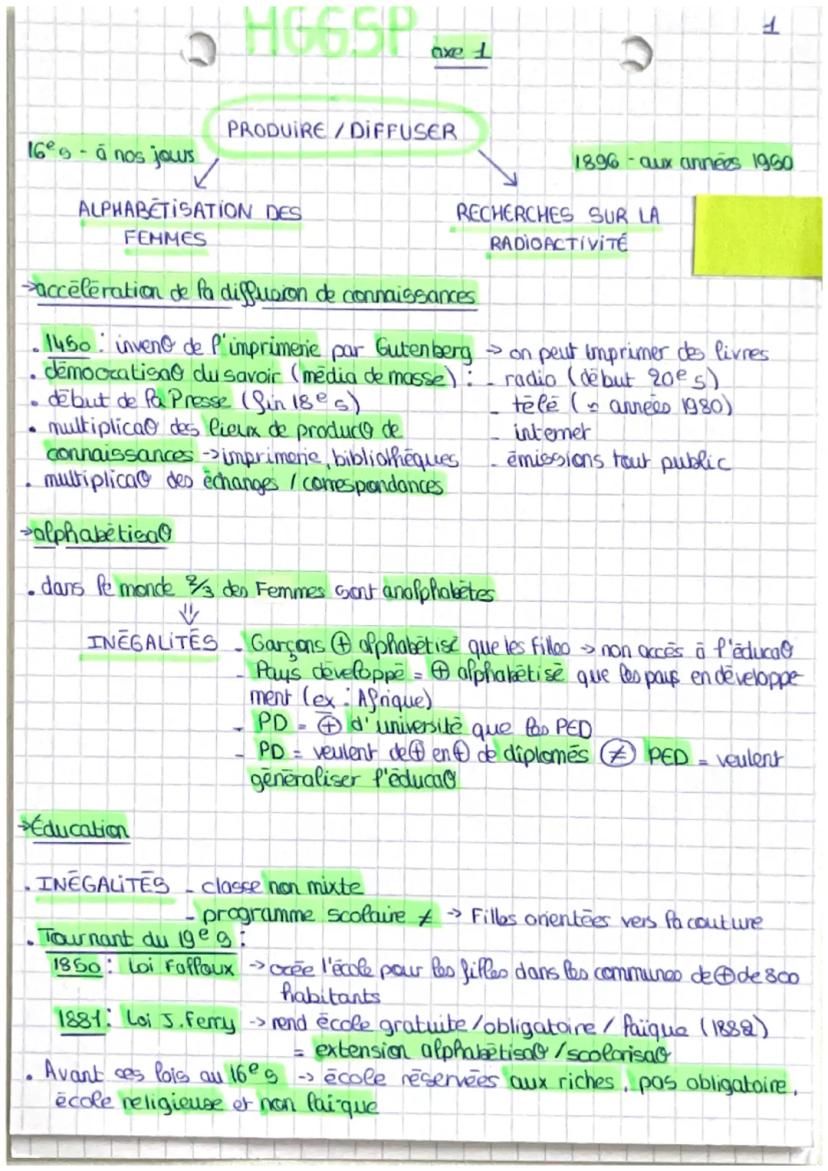 1
HGGSP axe 1
PRODUIRE / DIFFUSER
16e s - à nos jours
1896 - aux années 1960
ALPHABÉTISATION DES
FEMMES
RECHERCHES SUR LA
RADIOACTIVITÉ
→accélération de la diffusion de connaissances
. 1450 : invenθ de l'imprimerie par Gutenberg → on peut imprimer des livres
. démocratisaθ du savoir (média de masse) : - radio (début 20e s)
. début de la Presse (fin 18e s) - télé (≃ années 1980)
. multiplicaθ des lieux de producθ de - internet
connaissances →imprimerie, bibliothèques - émissions tout public
. multiplicaθ des échanges / correspondances
→alphabétisaθ
. dans le monde 2/3 des Femmes sont analphabètes
⇓
INÉGALITÉS - Garçons ⊕ alphabétisé que les filles → non accès à l'éducaθ
- Pays développé = ⊕ alphabétisé que les pays en développe
ment (ex : Afrique)
- PD = ⊕ d'université que les PED
- PD = veulent de ⊕ en ⊕ de diplomés ≠ PED = veulent
généraliser l'éducaθ
→Éducation
. INÉGALITÉS - classe non mixte
- programme scolaire ≠ → Filles orientées vers la couture
. Tournant du 19e s :
1850 : Loi Falloux → crée l'école pour les filles dans les communes de ⊕ de 800
habitants
1881 : Loi J. Ferry → rend école gratuite / obligatoire / laïque (1882)
= extension alphabétisaθ / scolarisaθ
. Avant ces lois au 16e s → école réservées aux riches, pas obligatoire,
école religieuse et non laï-que